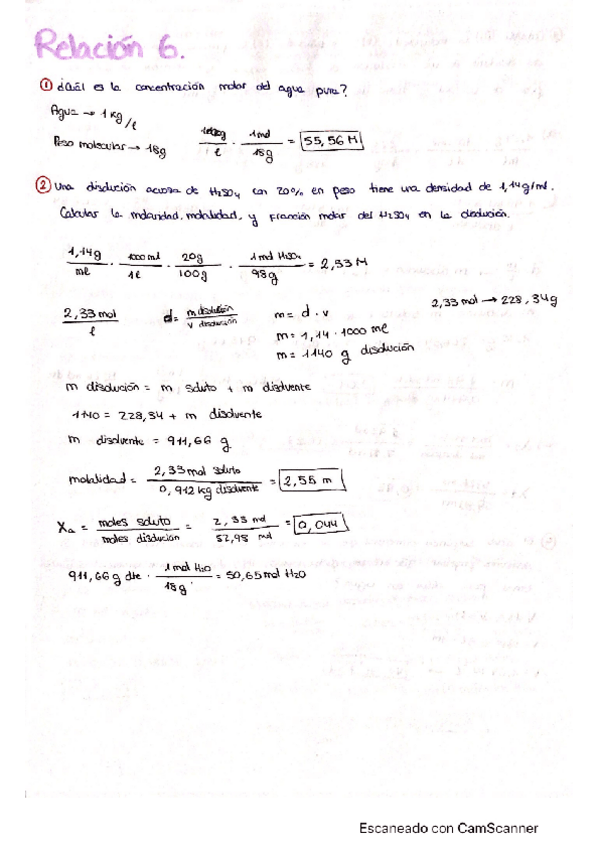 Relación 6.
① ¿Cuál es la concentración molar del agua pura?
Agua → 1 Kg/l
Peso molecular → 18g 1000g/1l · 1mol/18g = 55,56 M
② Una disolución acuosa de H₂SO₄ con 20% en peso tiene una densidad de 1,14g/ml.
Calcular la molaridad, molalidad, y fracción molar del H₂SO₄ en la disolución.
1,14g/ml · 1000ml/1l · 20g/100g · 1mol H₂SO₄/98g = 2,33 M
2,33 mol → 228,34g
2,33 mol/l d = m disolución/v disolución m = d · v
m = 1,14 · 1000 ml
m = 1140 g disolución
m disolución = m soluto + m disolvente
1140 = 228,34 + m disolvente
m disolvente = 911,66 g
molalidad = 2,33 mol soluto/0,912 kg disolvente = 2,55 m
Xₐ = moles soluto/moles disolución = 2,33 mol/52,98 mol = 0,044
911,66 g dte · 1mol H₂O/18g = 50,65 mol H₂O
Escaneado con CamScanner